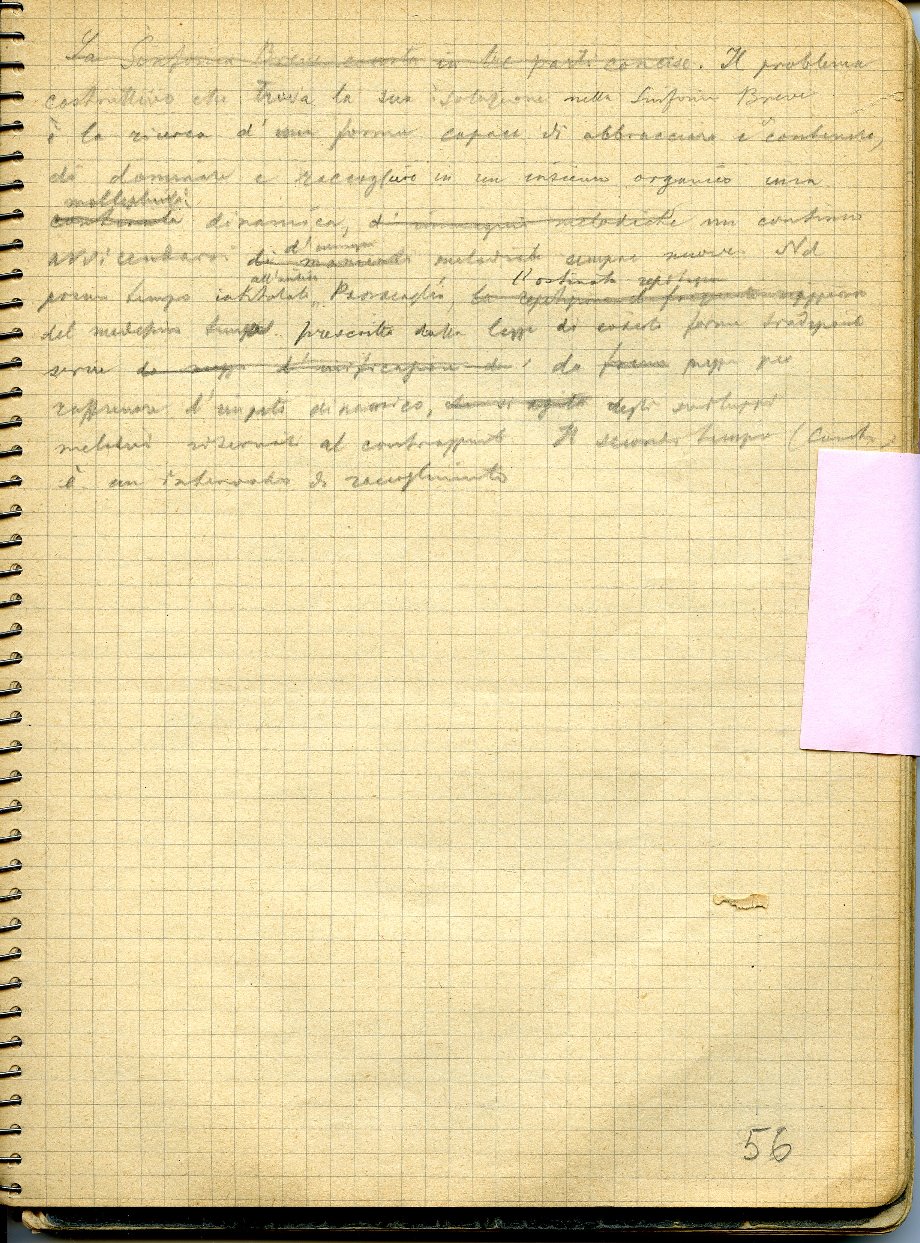 La Sinfonia Breve consta in tre parti concise. Il problema
costruttivo che trova la sua soluzione nella Sinfonia Breve
è la ricerca d'una forma capace di abbracciare e contenere,
di dominare e raccogliere in un insieme organico una
molteplicità
continuità dinamica, d' melodiche un continuo
avvicendarsi di d' melodiche sempre nuove. Nel
all'antica L'ostinata ripetizione
primo tempo intitolato "Passacaglia,
del medesimo prescritta dalla legge di codesta forma
serve da mezzo d'unificazione da forma mezzo per
raffrenare l'impeto dinamico, degli sviluppi
melodici riservati al contrappunto. Il secondo tempo (
è un intermezzo di raccoglimento
56